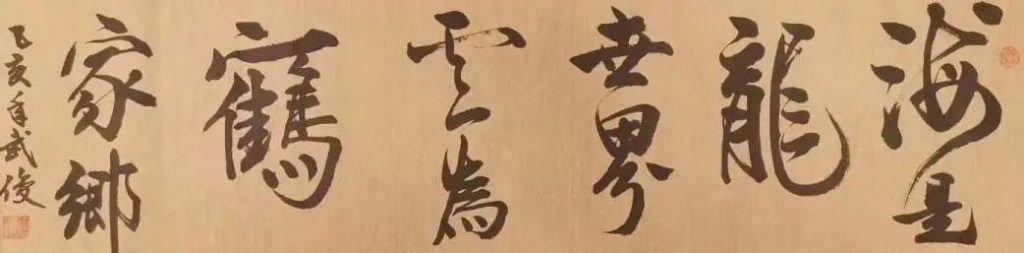 海是
龍
世界
云為
鶴
家鄉
己亥年武俊